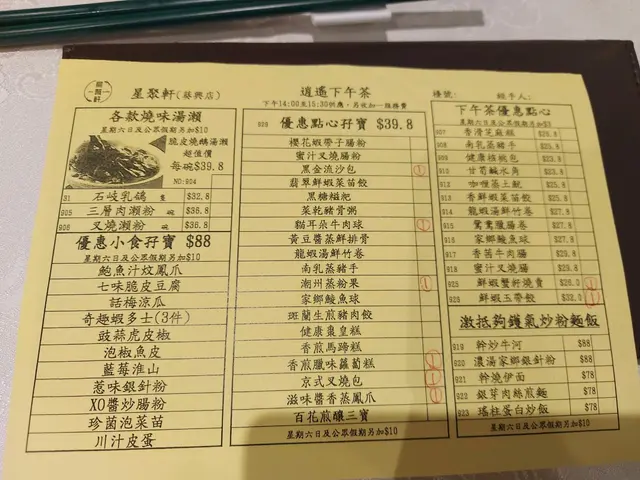 星聚軒(葵興店)
逍遙下午茶
下午14:00至15:30供應，另收加一服務費
檯號:
經手人:
各款燒味湯瀨
星期六日及公眾假期另加$10
脆皮燒鵝湯瀨
超值價
每碗$39.8
NO:904
石岐乳鴿 隻 $32.8
905 三層肉瀨粉 碗 $36.8
906 叉燒瀨粉 碗 $36.8
優惠小食孖寶 $88
星期六日及公眾假期另加$10
鮑魚汁炆鳳爪
七味脆皮豆腐
話梅涼瓜
奇趣蝦多士(3件)
豉蒜虎皮椒
泡椒魚皮
藍莓淮山
惹味銀針粉
XO醬炒腸粉
珍菌泡菜苗
川汁皮蛋
939 優惠點心孖寶 $39.8
櫻花蝦帶子腸粉
蜜汁叉燒腸粉
黑金流沙包
翡翠鮮蝦菜苗餃
黑糖糍粑
菜乾豬骨粥
貓耳朵牛肉球
黃豆醬蒸鮮排骨
龍蝦湯鮮竹卷
南乳蒸豬手
潮州蒸粉果
家鄉鯪魚球
斑蘭生煎豬肉餃
健康棗皇糕
香煎馬蹄糕
香煎臘味蘿蔔糕
京式叉燒包
滋味醬香蒸鳳爪
百花煎釀三寶
星期六日及公眾假期另加$10
下午茶優惠點心
星期六日及公眾假期另加$10
907 香滑芝麻糕
908 南乳蒸豬手
909 健康核桃包
910 甘荀鹹水角
912 咖喱蒸土魷
913 香鮮蝦菜苗餃
914 龍蝦湯鮮竹卷
915 鴛鴦臘腸卷
916 家鄉鯪魚球
917 香茜牛肉腸
918 蜜汁叉燒腸
925 鮮蝦蟹籽燒賣
926 鮮蝦玉帶餃
激抵夠鑊氣炒粉麵飯
919 幹炒牛河 $88
920 濃湯家鄉銀針粉 $88
921 幹燒伊面 $78
922 銀芽肉絲煎麵 $78
923 瑤柱蛋白炒飯 $78
星期六日及公眾假期另加$10